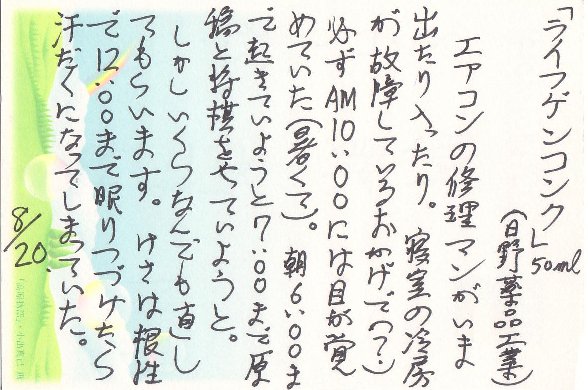 「ライフゲンコンクL 50ml
(日野薬品工業)
エアコンの修理マンがいま
出たり入ったり。寝室の冷房
が故障しているおかげで(?)
必ずAM10:00には目が覚
めていた(暑くて)。朝6:00ま
で起きていようと7:00まで原
稿と将棋をやっていようと。
しかしいくらなんでも直し
てもらいます。けさは根性
で12:00まで眠りつづけたら
汗だくになってしまっていた。
8/20.